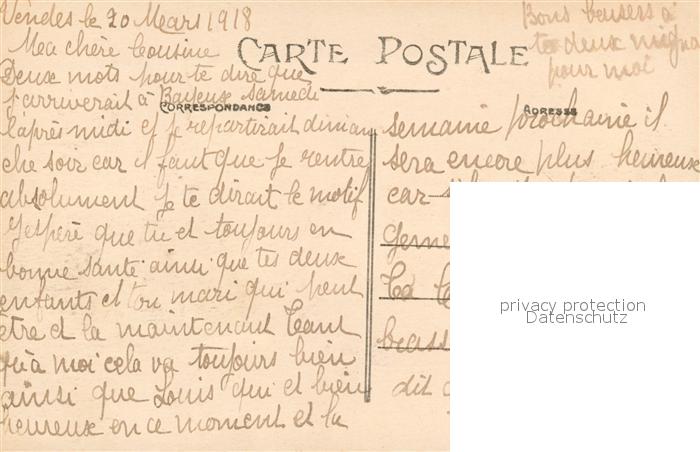 Vendes le 20 Mars 1918
Ma chère Cousine
Deux mots pour te dire que
j'arriverait à Bayeux samedi
l'après midi et je repartirait diman
che soir car il faut que je rentre
absolument je te dirait le motif
J'espère que tu et toujours en
bonne santé ainsi que tes deux
enfants et ton mari qui peut
être et la maintenant tant
qu'à moi cela va toujours bien
ainsi que Louis qui et bien
heureux en ce moment et la
CARTE POSTALE
CORRESPONDANCE
ADRESSE
Bons baisers à
tes deux
pour moi
semaine prochaine il
sera encore plus heureux
car
dit
privacy protection
Datenschutz